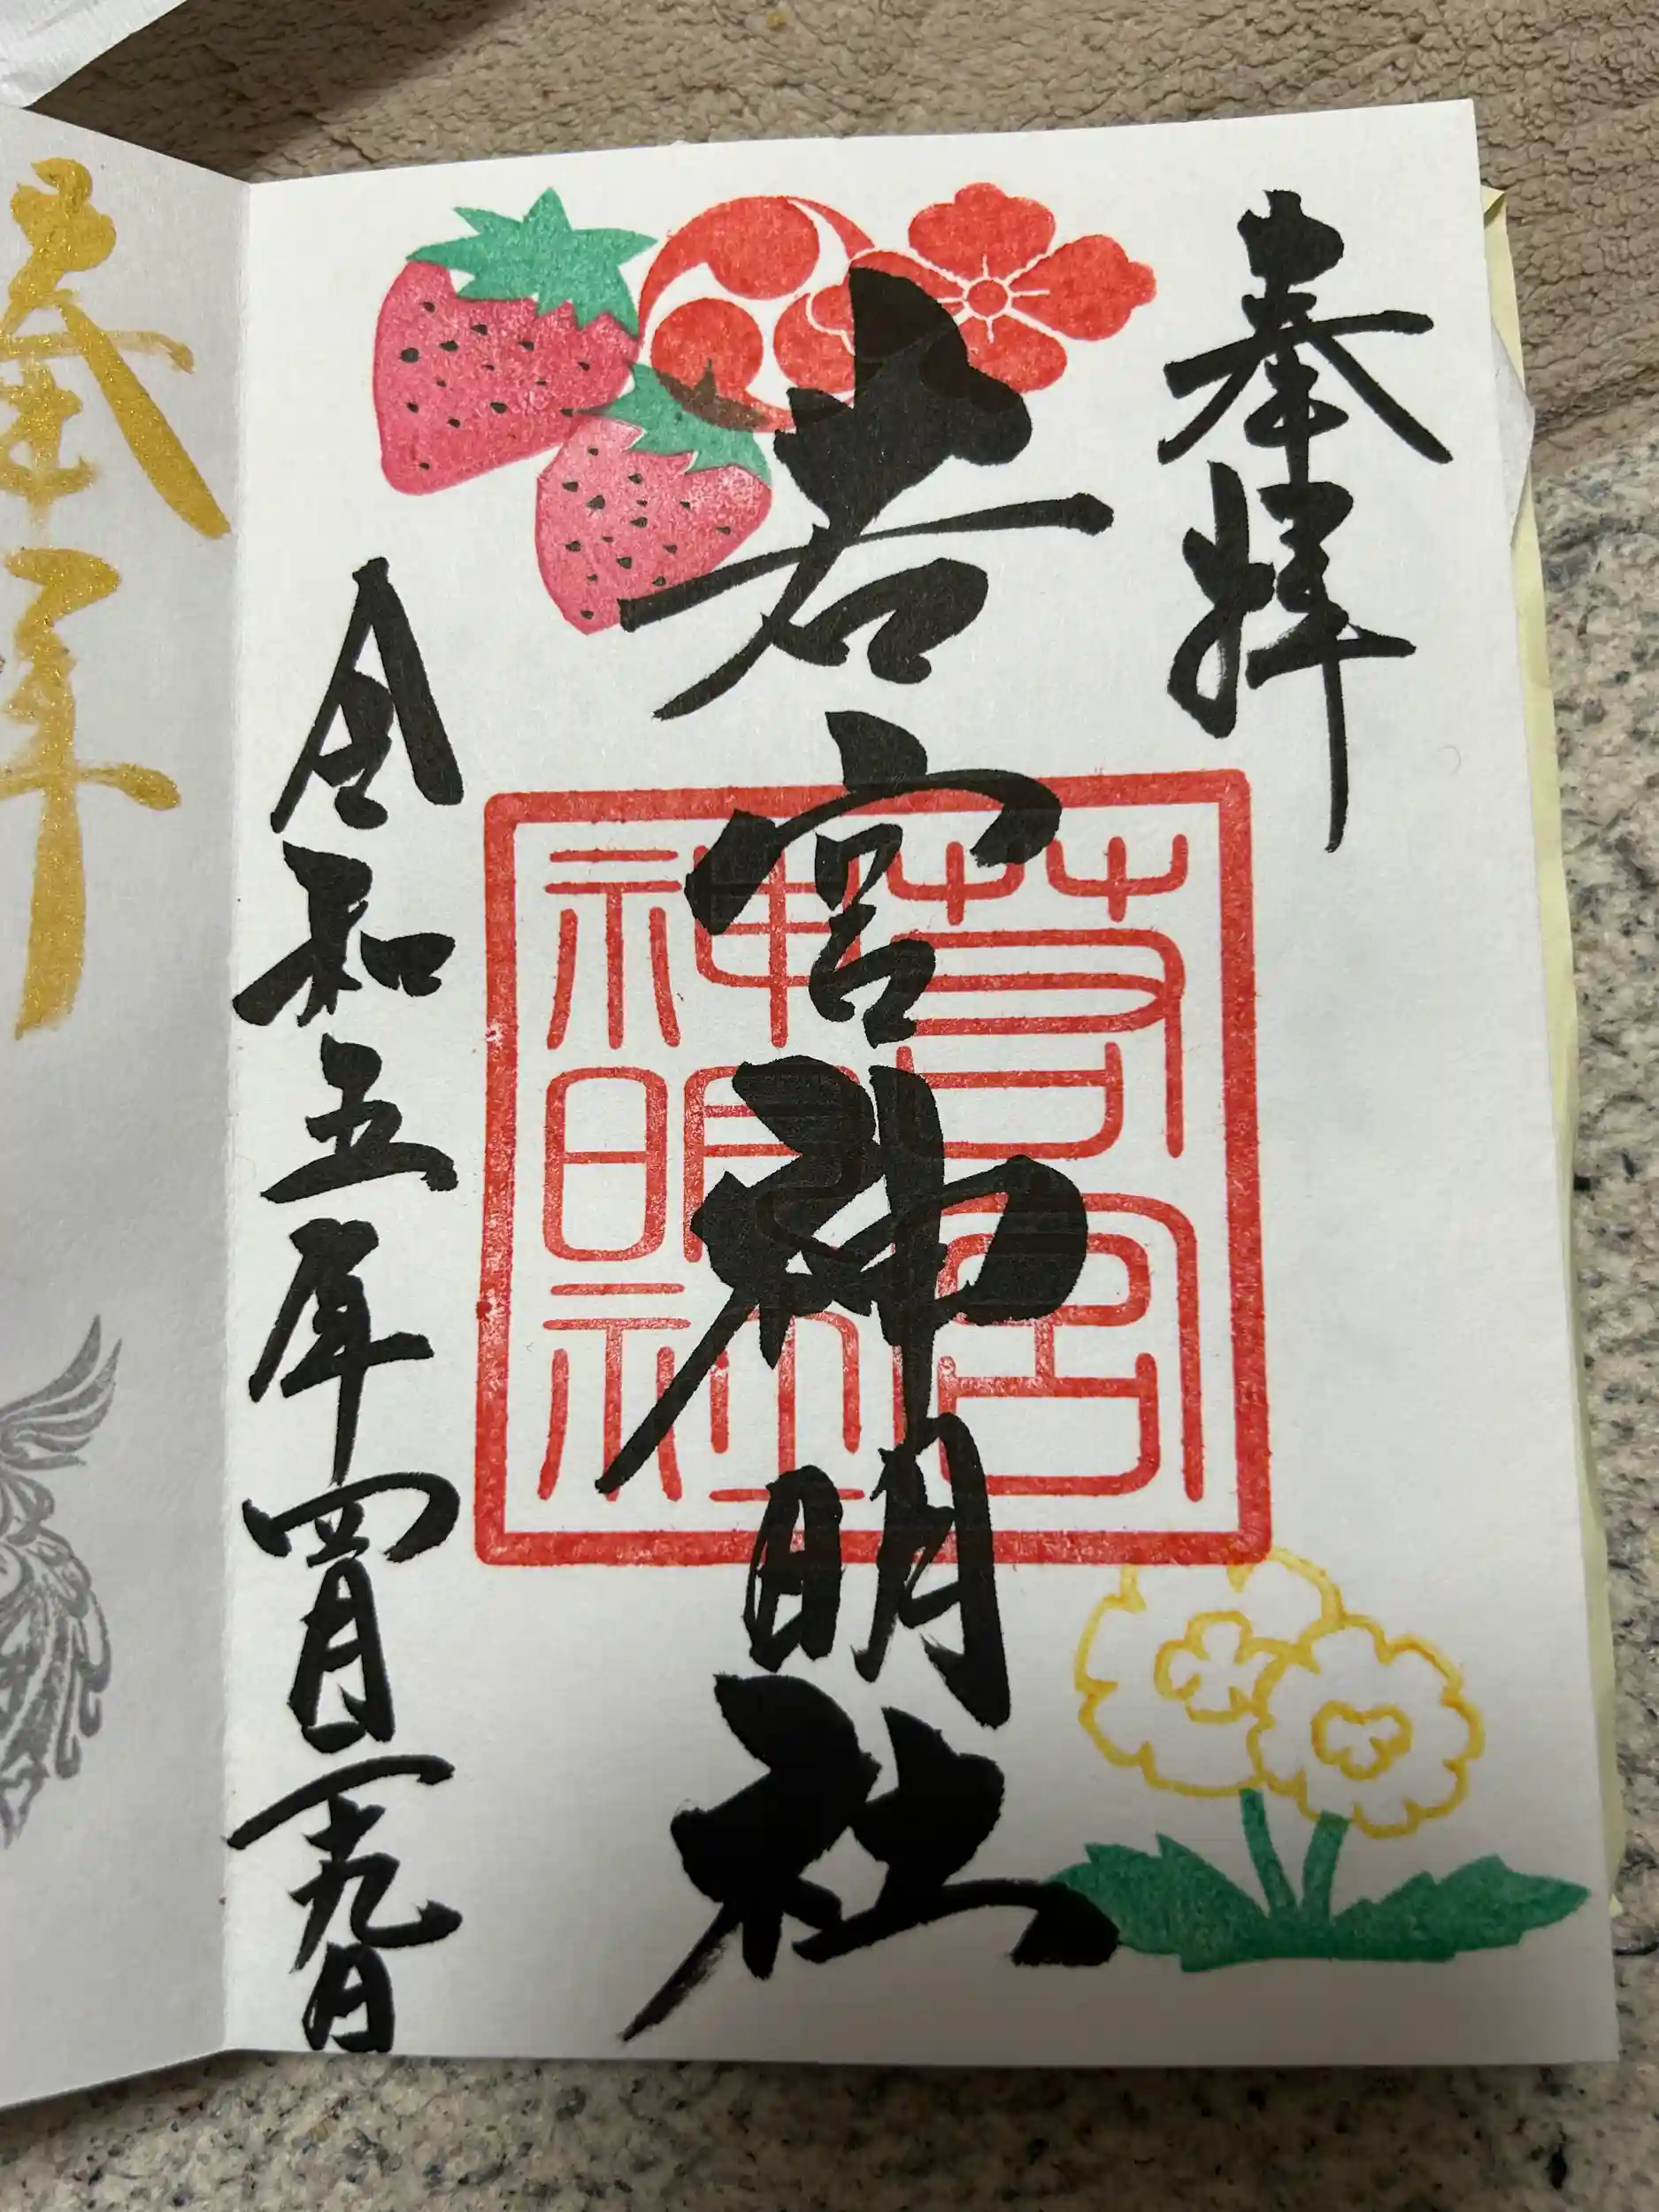 奉拝
若宮神明社
若宮
神明社
令和五年四月十九日
奉拝